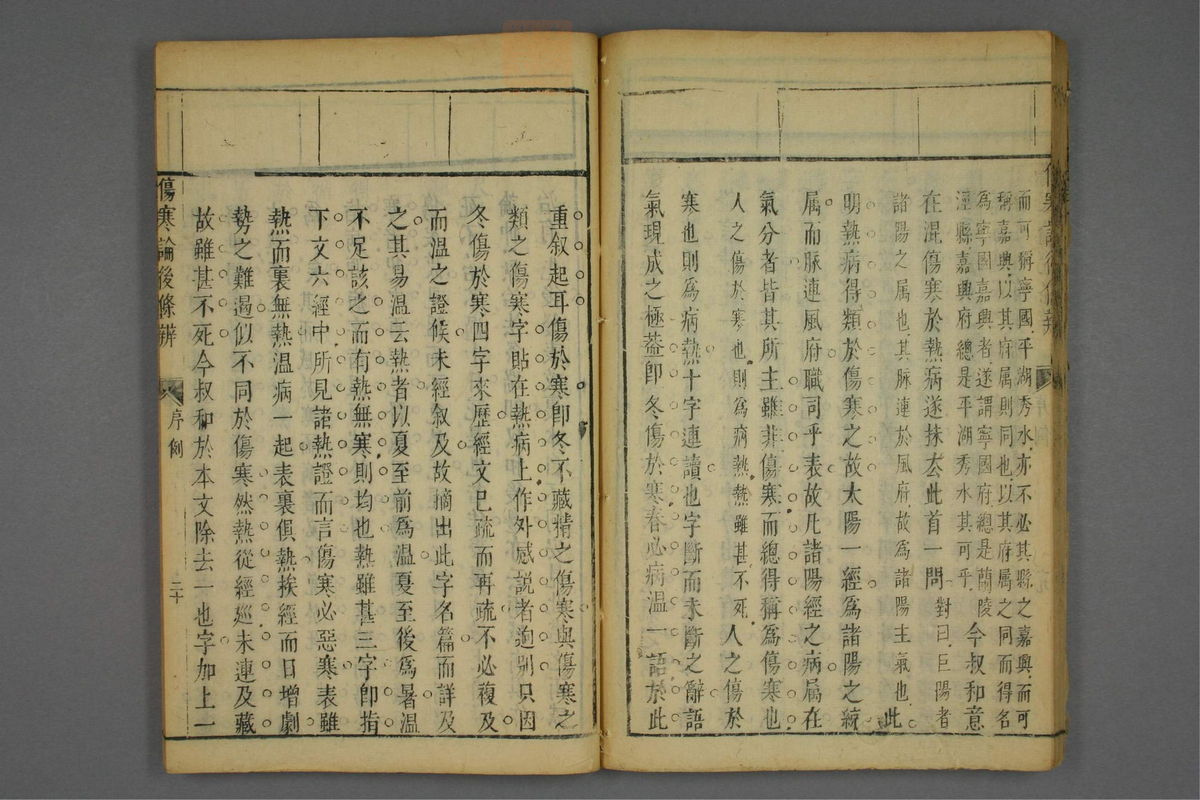 而可稱寧國平湖秀水亦不必其縣之嘉興而可
稱嘉興以其府屬則同也以其府屬之同而得名
為寧國嘉興者遂謂寧國府總是蘭陵
涇縣嘉興府總是平湖秀水其可乎今叔和意
在混傷寒於熱病遂抹去此首一問對曰巨陽者
諸陽之属也其脉連於風府故為諸陽主氣也此
明熱病得類於傷寒之故太陽一經為諸陽之統
属而脉連風府職司乎表故凡諸陽經之病属在
氣分者皆其所主雖非傷寒而總得稱為傷寒也
人之傷於寒也則為病熱熱雖甚不死人之傷於
寒也則為病熱十字連讀也字斷而未斷之辭語
氣現成之極葢即冬傷於寒春必病溫一語於此
重叙起耳傷於寒即冬不藏精之傷寒與傷寒之
類之傷寒字貼在熱病上作外感説者逈别只因
冬傷於寒四字來歷經文已疏而再疏不必複及
而溫之證候未經叙及故摘出此字名篇而詳及
之其易溫云熱者以夏至前為溫夏至後為暑溫
不足該之而有熱無寒則均也熱雖甚三字即指
下文六經中所見諸熱證而言傷寒必惡寒表雖
熱而裏無熱溫病一起表裏俱熱挨經而日增劇
勢之難遏似不同於傷寒然熱從經廵未連及藏
故雖甚不死今叔和於本文除去一也字加上一
傷寒論後條辨 序例 二十